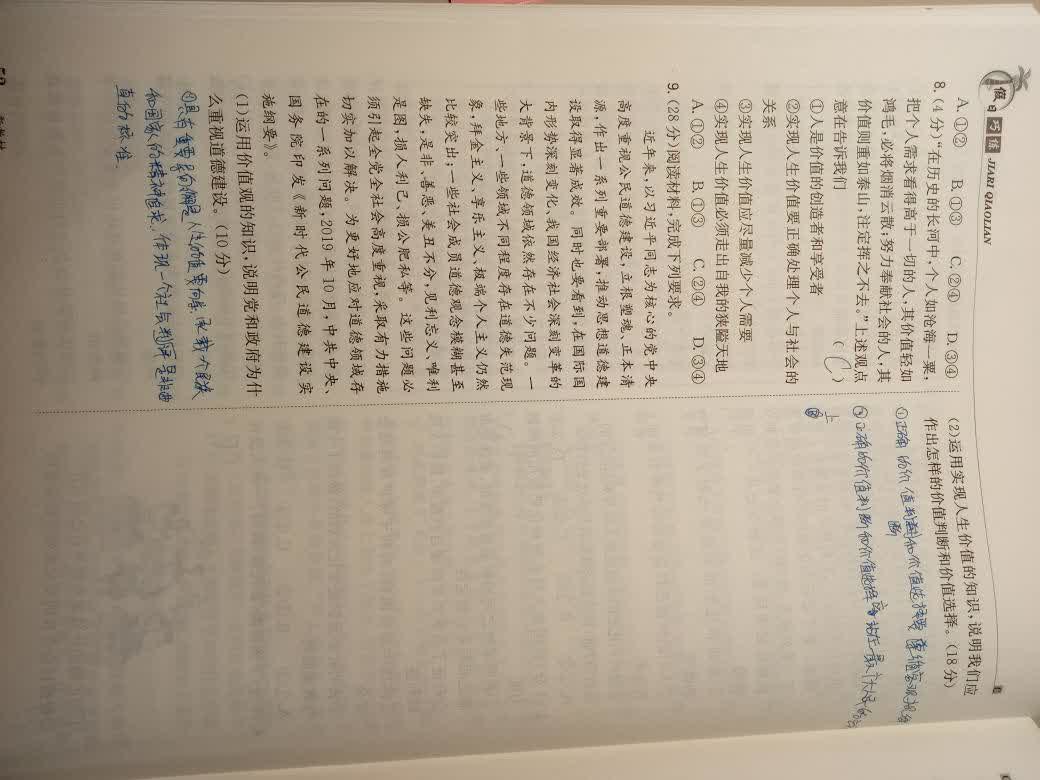 假日巧练 JIARI QIAOLIAN
A.①② B.①③ C.②④ D.③④
8.(4分)“在历史的长河中,个人如沧海一粟,
把个人需求看得高于一切的人,其价值轻如
鸿毛,必将烟消云散;努力奉献社会的人,其
价值则重如泰山,注定挥之不去。”上述观点
意在告诉我们 ( C )
①人是价值的创造者和享受者
②实现人生价值要正确处理个人与社会的
关系
③实现人生价值应尽量减少个人需要
④实现人生价值必须走出自我的狭隘天地
A.①② B.①③ C.②④ D.③④
9.(28分)阅读材料,完成下列要求。
近年来,以习近平同志为核心的党中央
高度重视公民道德建设,立根塑魂、正本清
源,作出一系列重要部署,推动思想道德建
设取得显著成效。同时也要看到,在国际国
内形势深刻变化、我国经济社会深刻变革的
大背景下,道德领域依然存在不少问题。一
些地方、一些领域不同程度存在道德失范现
象,拜金主义、享乐主义、极端个人主义仍然
比较突出;一些社会成员道德观念模糊甚至
缺失,是非、善恶、美丑不分,见利忘义、唯利
是图,损人利己、损公肥私等。这些问题必
须引起全党全社会高度重视,采取有力措施
切实加以解决。为更好地应对道德领域存
在的一系列问题,2019年10月,中共中央、
国务院印发《新时代公民道德建设实
施纲要》。
(1)运用价值观的知识,说明党和政府为什
么重视道德建设。(10分)
人生的重要向导
和国家的精神追求,体现一个社会判断是非曲
直的标准
(2)运用实现人生价值的知识,说明我们应
作出怎样的价值判断和价值选择。(18分)
①正确的价值判断和价值选择
②正确的价值判断和价值选择 站在最广大人民的
上
③